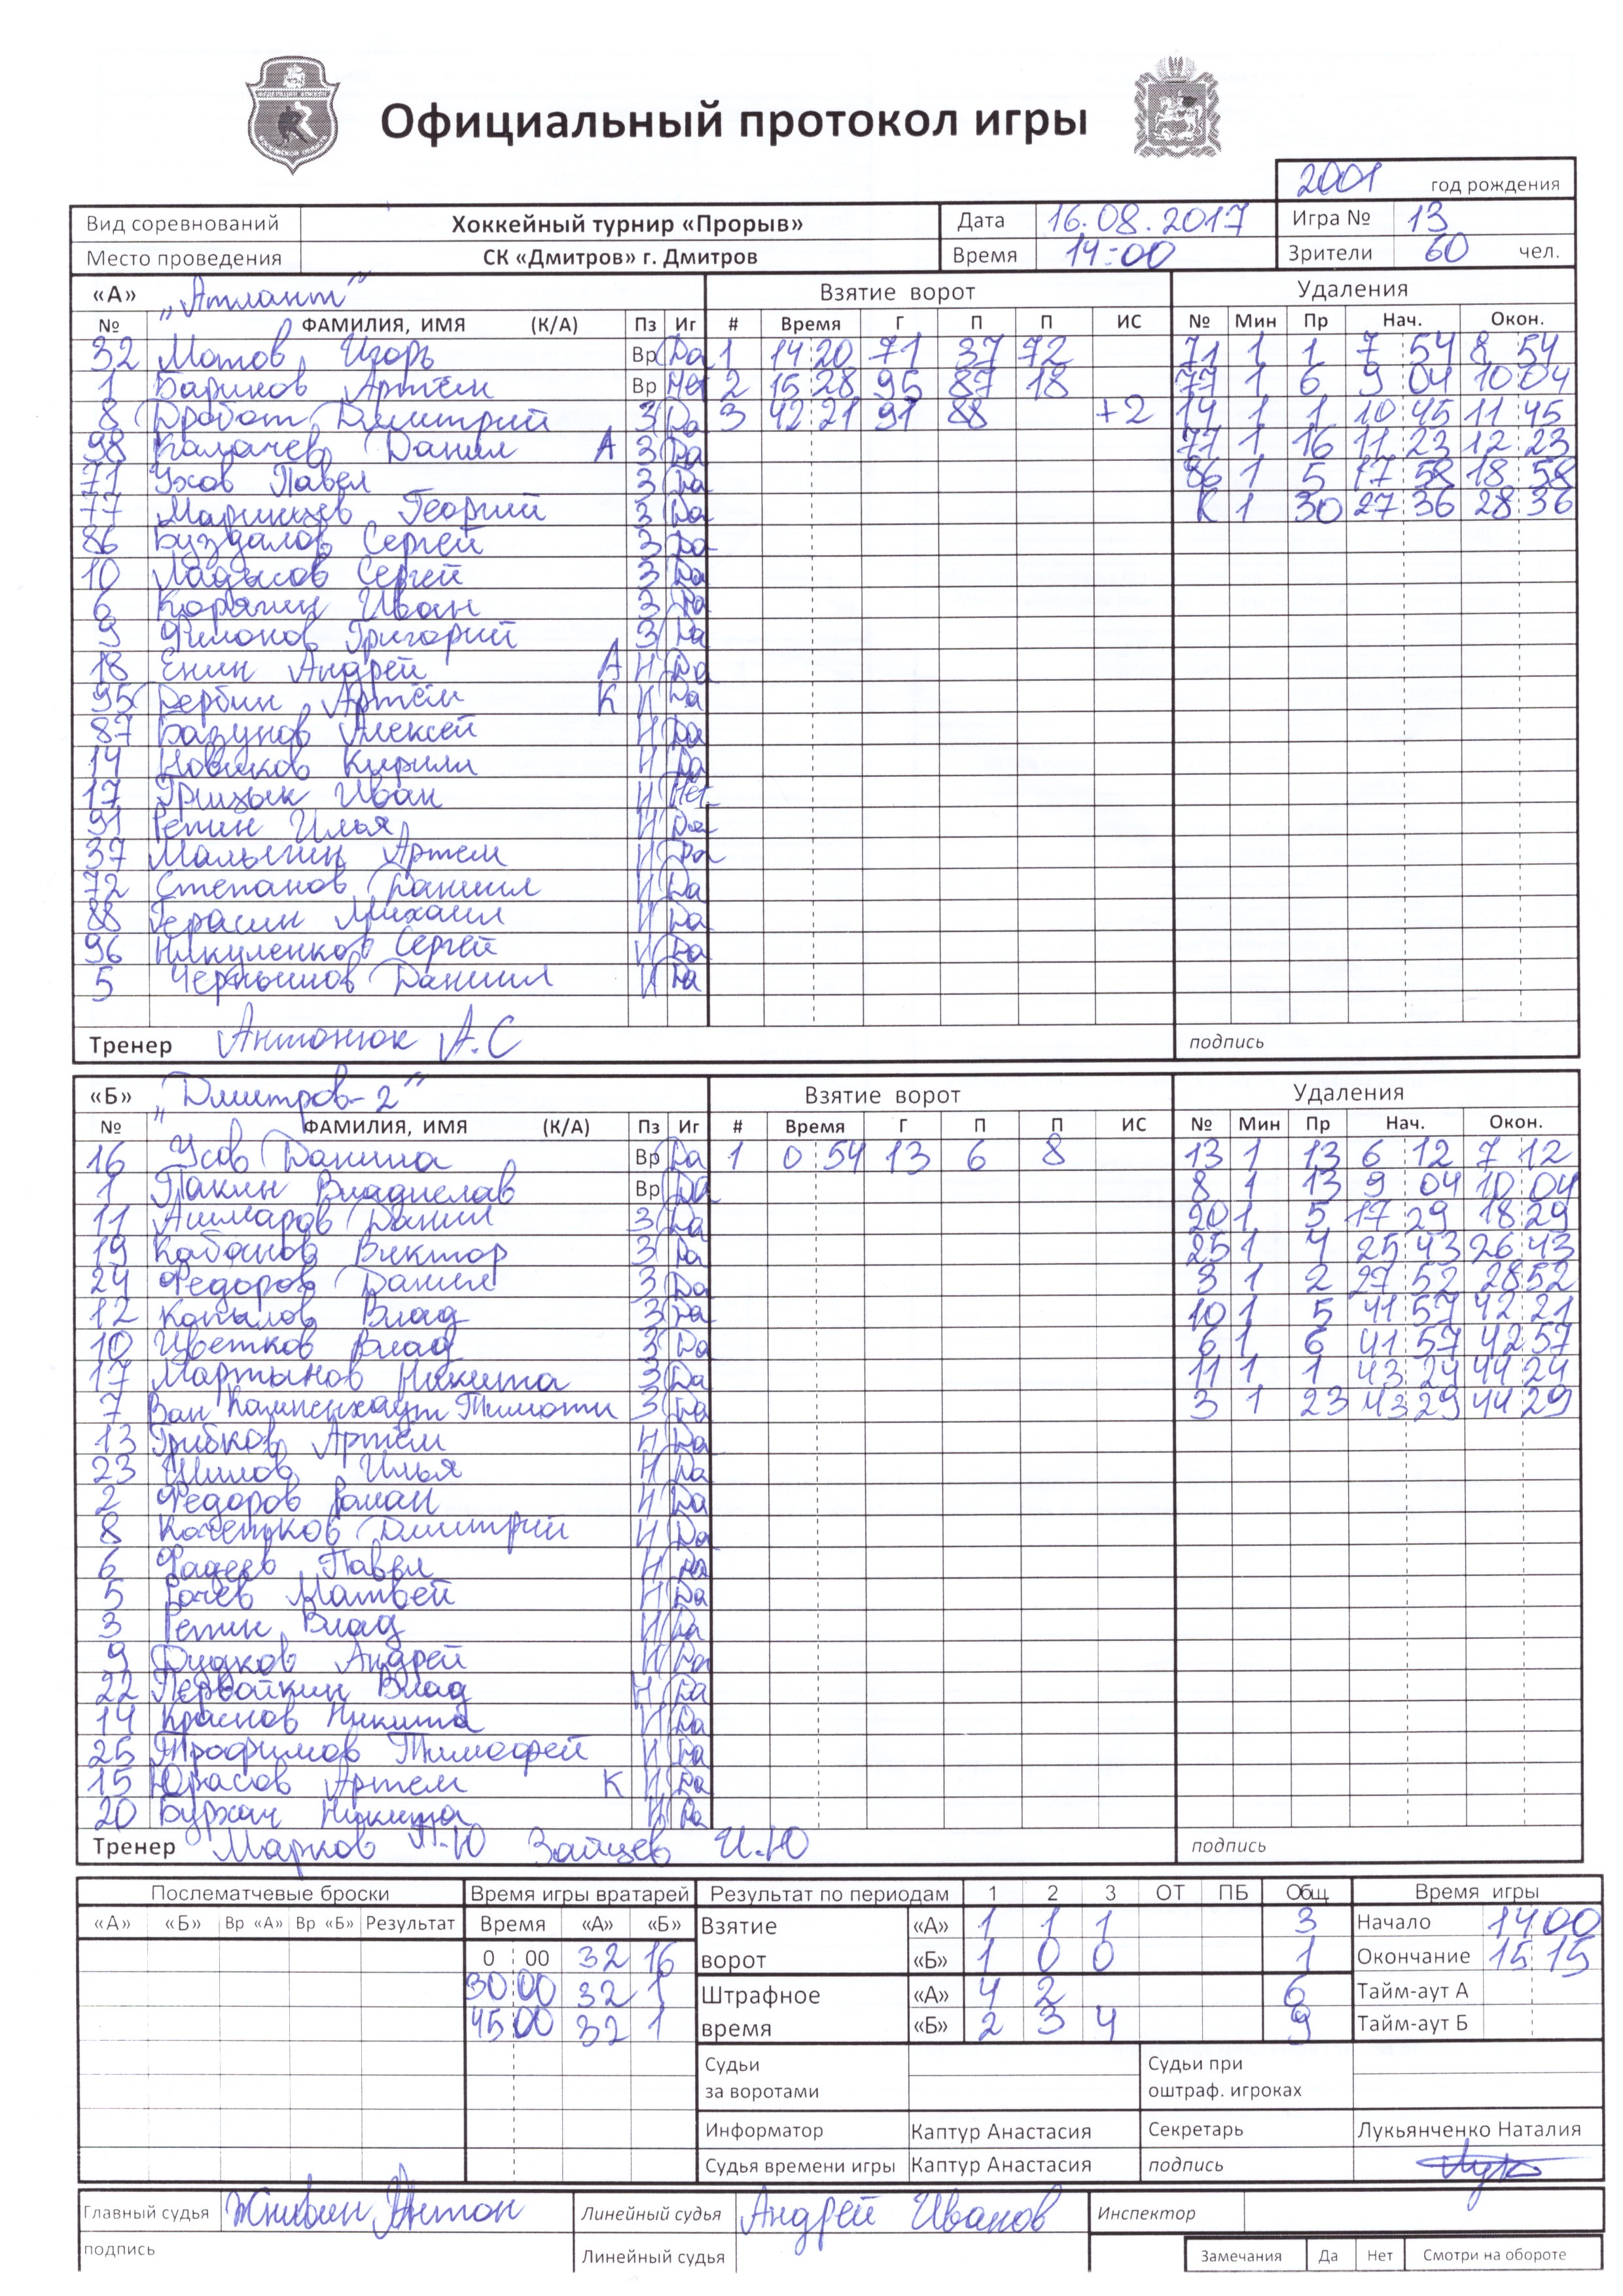 Официальный протокол игры
2001 год рождения
Вид соревнований Хоккейный турнир «Прорыв» Дата 16.08.2017 Игра № 13
Место проведения СК «Дмитров» г. Дмитров Время 14:00 Зрители 60 чел.
«А» „Атлант" Взятие ворот Удаления
№ ФАМИЛИЯ, ИМЯ (К/А) Пз Иг # Время Г П П ИС № Мин Пр Нач. Окон.
32 Мотов Игорь Вр Да 1 14 20 71 37 72 71 1 1 7 54 8 54
1 Баринов Артём Вр Нет 2 15 28 95 87 18 77 1 6 9 04 10 04
8 Дробот Дмитрий З Да 3 42 21 91 88 +2 14 1 1 10 45 11 45
98 Калачев Данил А З Да 77 1 16 11 23 12 23
71 Ухов Павел З Да 86 1 5 17 58 18 58
77 Маринцев Георгий З Да К 1 30 27 36 28 36
86 Буздалов Сергей З Да
10 Ладысов Сергей З Да
6 Корягин Иван З Да
9 Филонов Григорий З Да
18 Енин Андрей А Н Да
95 Дербин Артём К Н Да
87 Базунов Алексей Н Да
14 Новиков Кирилл Н Да
17 Грицык Иван Н Нет
91 Репин Илья Н Да
37 Малыгин Артем Н Да
72 Степанов Даниил Н Да
88 Герасин Михаил Н Да
96 Никуленков Сергей Н Да
5 Чернышов Даниил Н Да
Тренер Антонюк А.С подпись
«Б» „Дмитров-2" Взятие ворот Удаления
№ ФАМИЛИЯ, ИМЯ (К/А) Пз Иг # Время Г П П ИС № Мин Пр Нач. Окон.
16 Усов Данила Вр Да 1 0 54 13 6 8 13 1 13 6 12 7 12
1 Пакин Владислав Вр Да 8 1 13 9 04 10 04
11 Ашмаров Данил З Да 20 1 5 17 29 18 29
19 Кабанов Виктор З Да 25 1 4 25 43 26 43
24 Федоров Данил З Да 3 1 2 27 52 28 52
12 Копылов Влад З Да 10 1 5 41 57 42 21
10 Цветков Влад З Да 6 1 6 41 57 42 57
17 Мартынов Никита З Да 11 1 1 43 24 44 24
7 Ван Кампенхаут Тимоти З Да 3 1 23 43 29 44 29
13 Грибков Артём Н Да
23 Шилов Илья Н Да
2 Федоров Роман Н Да
8 Кочетков Дмитрий Н Да
6 Фадеев Павел Н Да
5 Рачев Матвей Н Да
3 Репин Влад Н Да
9 Дудков Андрей Н Да
22 Первойкин Влад Н Да
14 Краснов Никита Н Да
25 Трофимов Тимофей Н Да
15 Юрасов Артем К Н Да
20 Бурхач Никита Н Да
Тренер Марков П.Ю Зайцев И.Ю подпись
Послематчевые броски Время игры вратарей Результат по периодам 1 2 3 ОТ ПБ Общ Время игры
«А» «Б» Вр «А» Вр «Б» Результат Время «А» «Б» Взятие «А» 1 1 1 3 Начало 14 00
0 00 32 16 ворот «Б» 1 0 0 1 Окончание 15 15
30 00 32 1 Штрафное «А» 4 2 6 Тайм-аут А
45 00 32 1 время «Б» 2 3 4 9 Тайм-аут Б
Судьи за воротами Судьи при оштраф. игроках
Информатор Каптур Анастасия Секретарь Лукьянченко Наталия
Судья времени игры Каптур Анастасия подпись
Главный судья Жнивин Антон Линейный судья Андрей Иванов Инспектор
подпись Линейный судья Замечания Да Нет Смотри на обороте